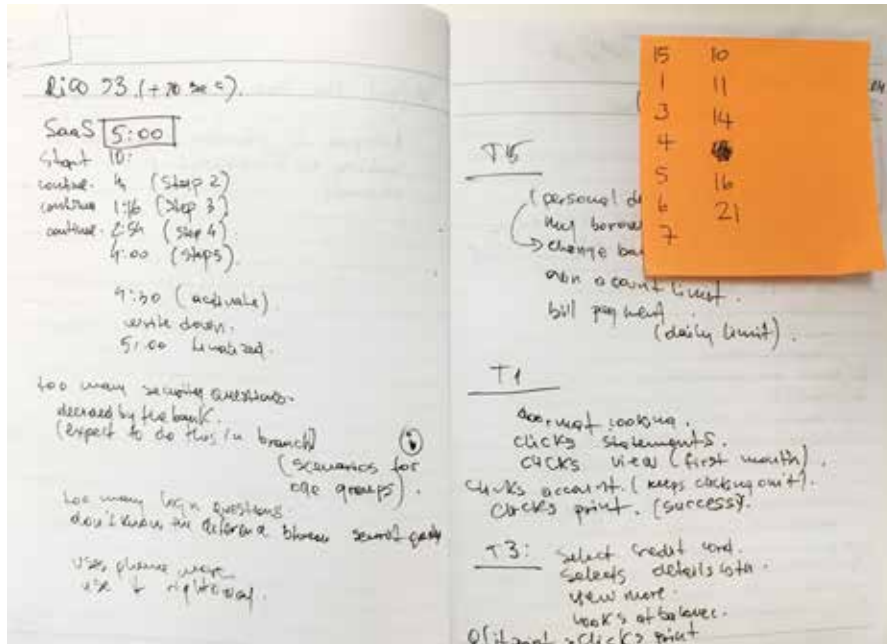 (+70 sec).
SaaS 5:00
Start 10:
continue. (Step 2)
continue 1:16 (Step 3)
continue. 2:54 (Step 4)
4:00 (Step5).
4:30 (activate).
write down.
5:00 finalized.
too many security questions.
decided by the bank.
(expect to do this in branch)
(scenarios for
age groups).
too many login questions
don't know the between secret
uses phone
use
15 10
1 11
3 14
4
5 16
6 21
7
(personal
my
change
own account limit.
bill payment
(daily limit).
T1
looking.
clicks statements.
clicks view (first month).
clicks account. (keeps clicking on it).
clicks print. (success).
T3: Select credit card.
selects details
view more.
looks at balance.
clicks print